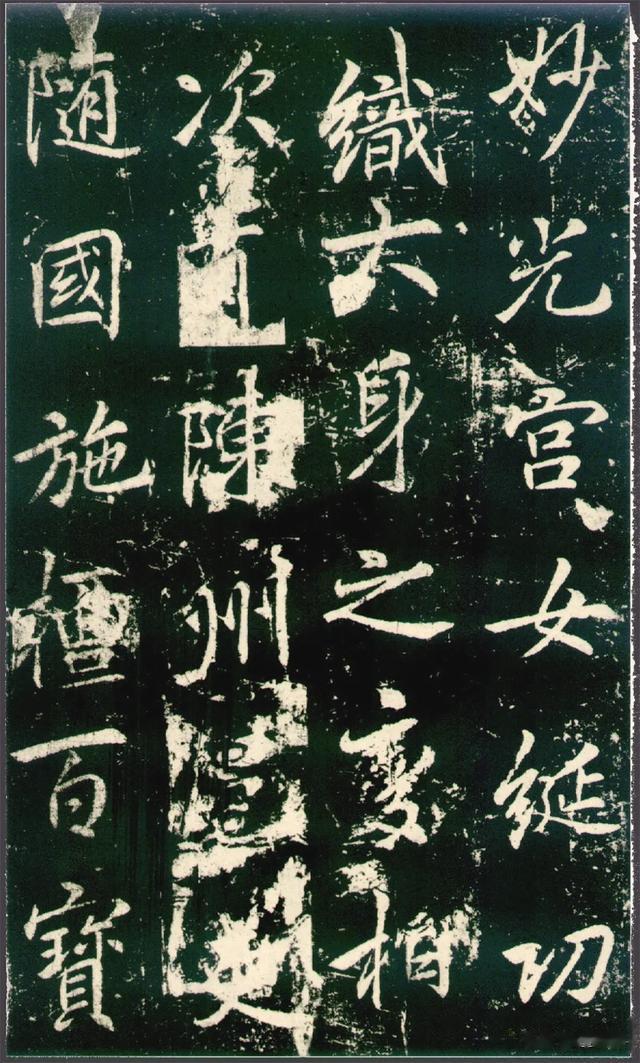 妙光宫女綖功
織大身之變相
次陳州
隨國施檀百寶